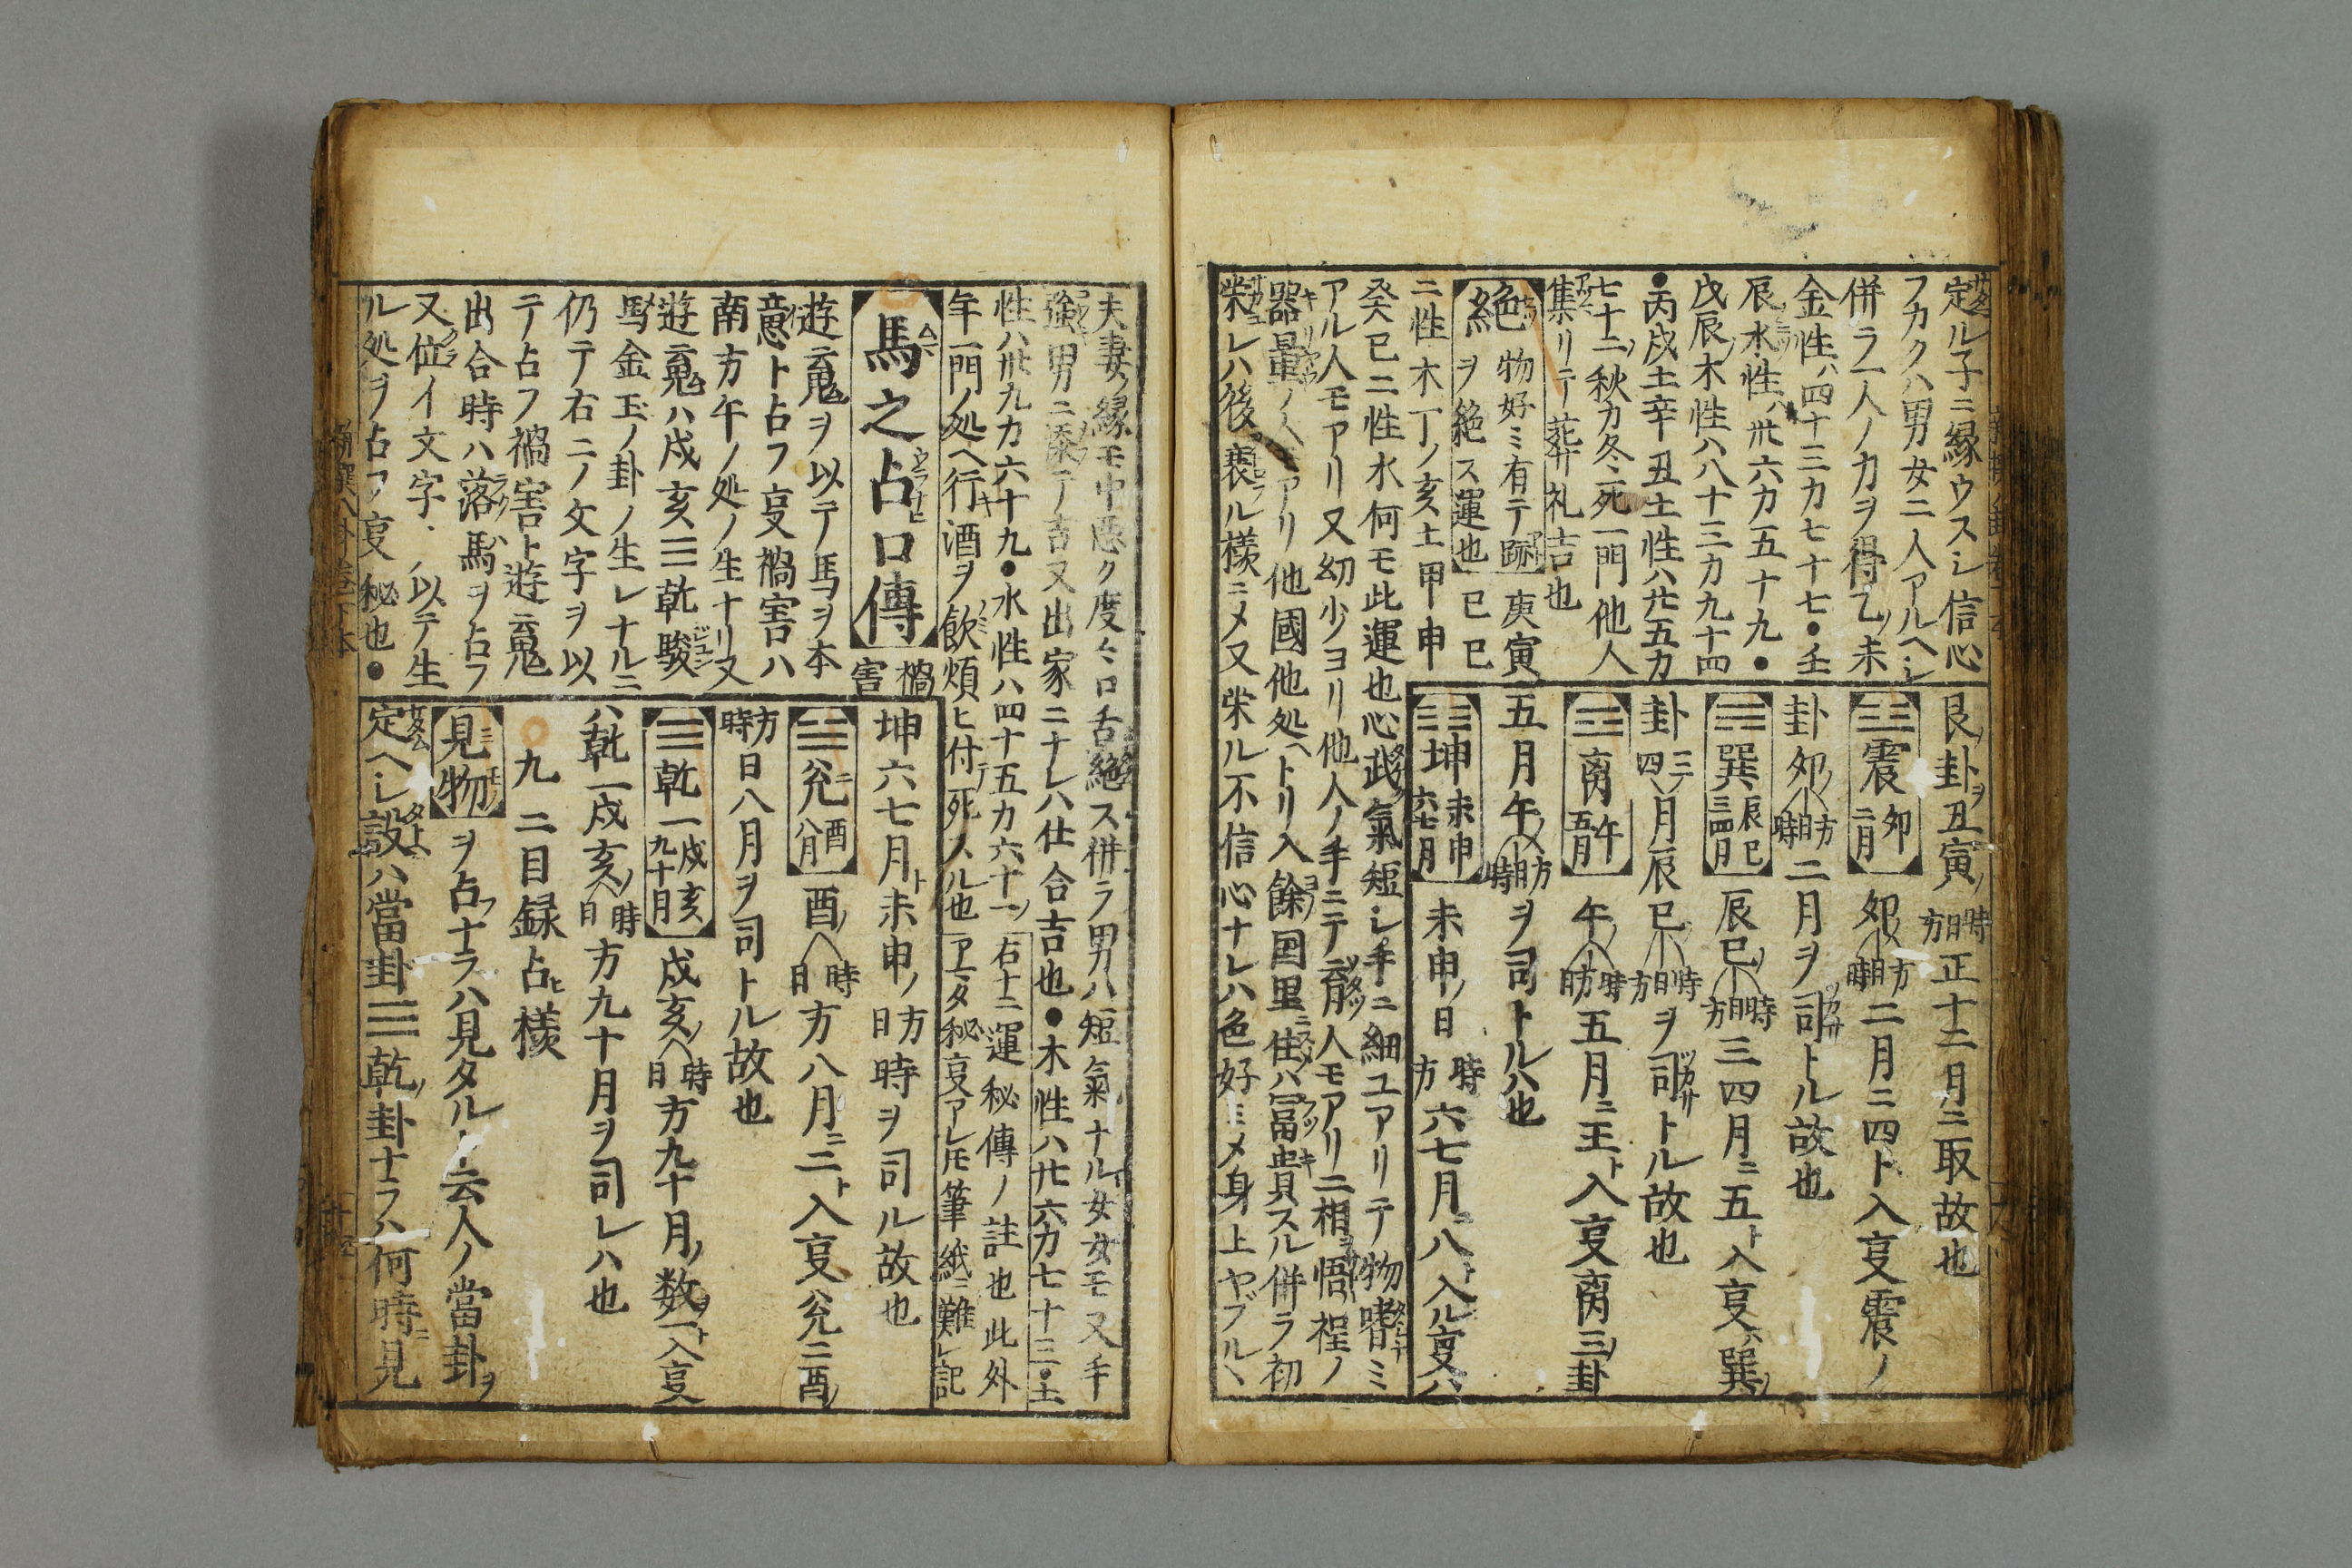 定ル子ニ縁ウスシ信心
フカクハ男女二人アルヘシ
併ラ一人ノ力ヲ得乙未
金性ハ四十三カ七十七●壬
辰水性ハ卅六カ五十九●
戊辰木性ハ八十三カ九十四
●丙戌土辛丑土性ハ廿五カ
七十二秋カ冬死一門他人
集リテ葬礼吉也
絶 物好ミ有テ跡
ヲ絶ス運也
庚寅
己巳
二性木丁ノ亥土甲申
癸巳二性水何モ此運也心武氣短シ手ニ細ユアリテ物嗜ミ
アル人モアリ又幼少ヨリ他人ノ手ニテ育人モアリ二相悟程ノ
器量ノ人アリ他國他処ヘトリ入餘国里住ハ冨貴スル併ラ初
栄レハ後衰ル様ニメ又栄ル不信心ナレハ色好ミメ身上ヤブル
艮卦ヲ丑寅ノ時日方正十二月ニ取故也
☳震 卯 二月 卯ノ方日時二月ニ四ト入㕝震ノ
卦卯ノ方日時二月ヲ司トル故也
☴巽 辰巳 三四月 辰巳ノ時日方三四月ニ五ト入㕝ハ巽ノ
卦三四月辰巳ノ時日方ヲ司トル故也
☲离 午 五月 午ノ時方日五月ニ三ト入㕝离三卦
五月午ノ方日時ヲ司トルハ也
☷坤 未申 六七月 未申ノ日時方六七月ニ八ト入ル㕝ハ
夫妻ノ縁モ中悪ク度々口舌絶ス併ラ男ハ短氣ナル女女モ又手
強男ニ添テ吉又出家ニナレハ仕合吉也●木性ハ廿六カ七十三●土
性ハ卅九カ六十九●水性ハ四十五カ六十一 右十二運秘傳ノ註也此外
年一門ノ処ヘ行酒ヲ飲煩ヒ付死スル也 アマタ秘㕝アレ𪜈筆紙ニ難レ記
馬之占口傳 禍害
遊䰟ヲ以テ馬ヲ本
意ト占フ㕝禍害ハ
南方午ノ処ノ生ナリ又
遊䰟ハ戌亥☰乾駿
馬金玉ノ卦ノ生レナルニ
仍テ右二ノ文字ヲ以
テ占フ禍害ト遊䰟
出合時ハ落馬ヲ占フ
又位イ文字ヲ以テ生
ル処ヲ占フ㕝秘也●
坤六七月ト未申ノ方日時ヲ司ル故也
☱兌 酉 八月 酉ノ時日方八月ニ二ト入㕝兌ニ酉ノ
方時日八月ヲ司トル故也
☰乾一 戌亥 九十月 戌亥ノ時日方九十月ノ数ヲ一ト入㕝
ハ乾一戌亥ノ時日方九十月ヲ司レハ也
九二目録占ヒ様
見物ヲ占フナラハ見タルト云人ノ當卦ヲ
定ヘシ設ハ當卦☰乾ノ卦ナラハ何時ニ見